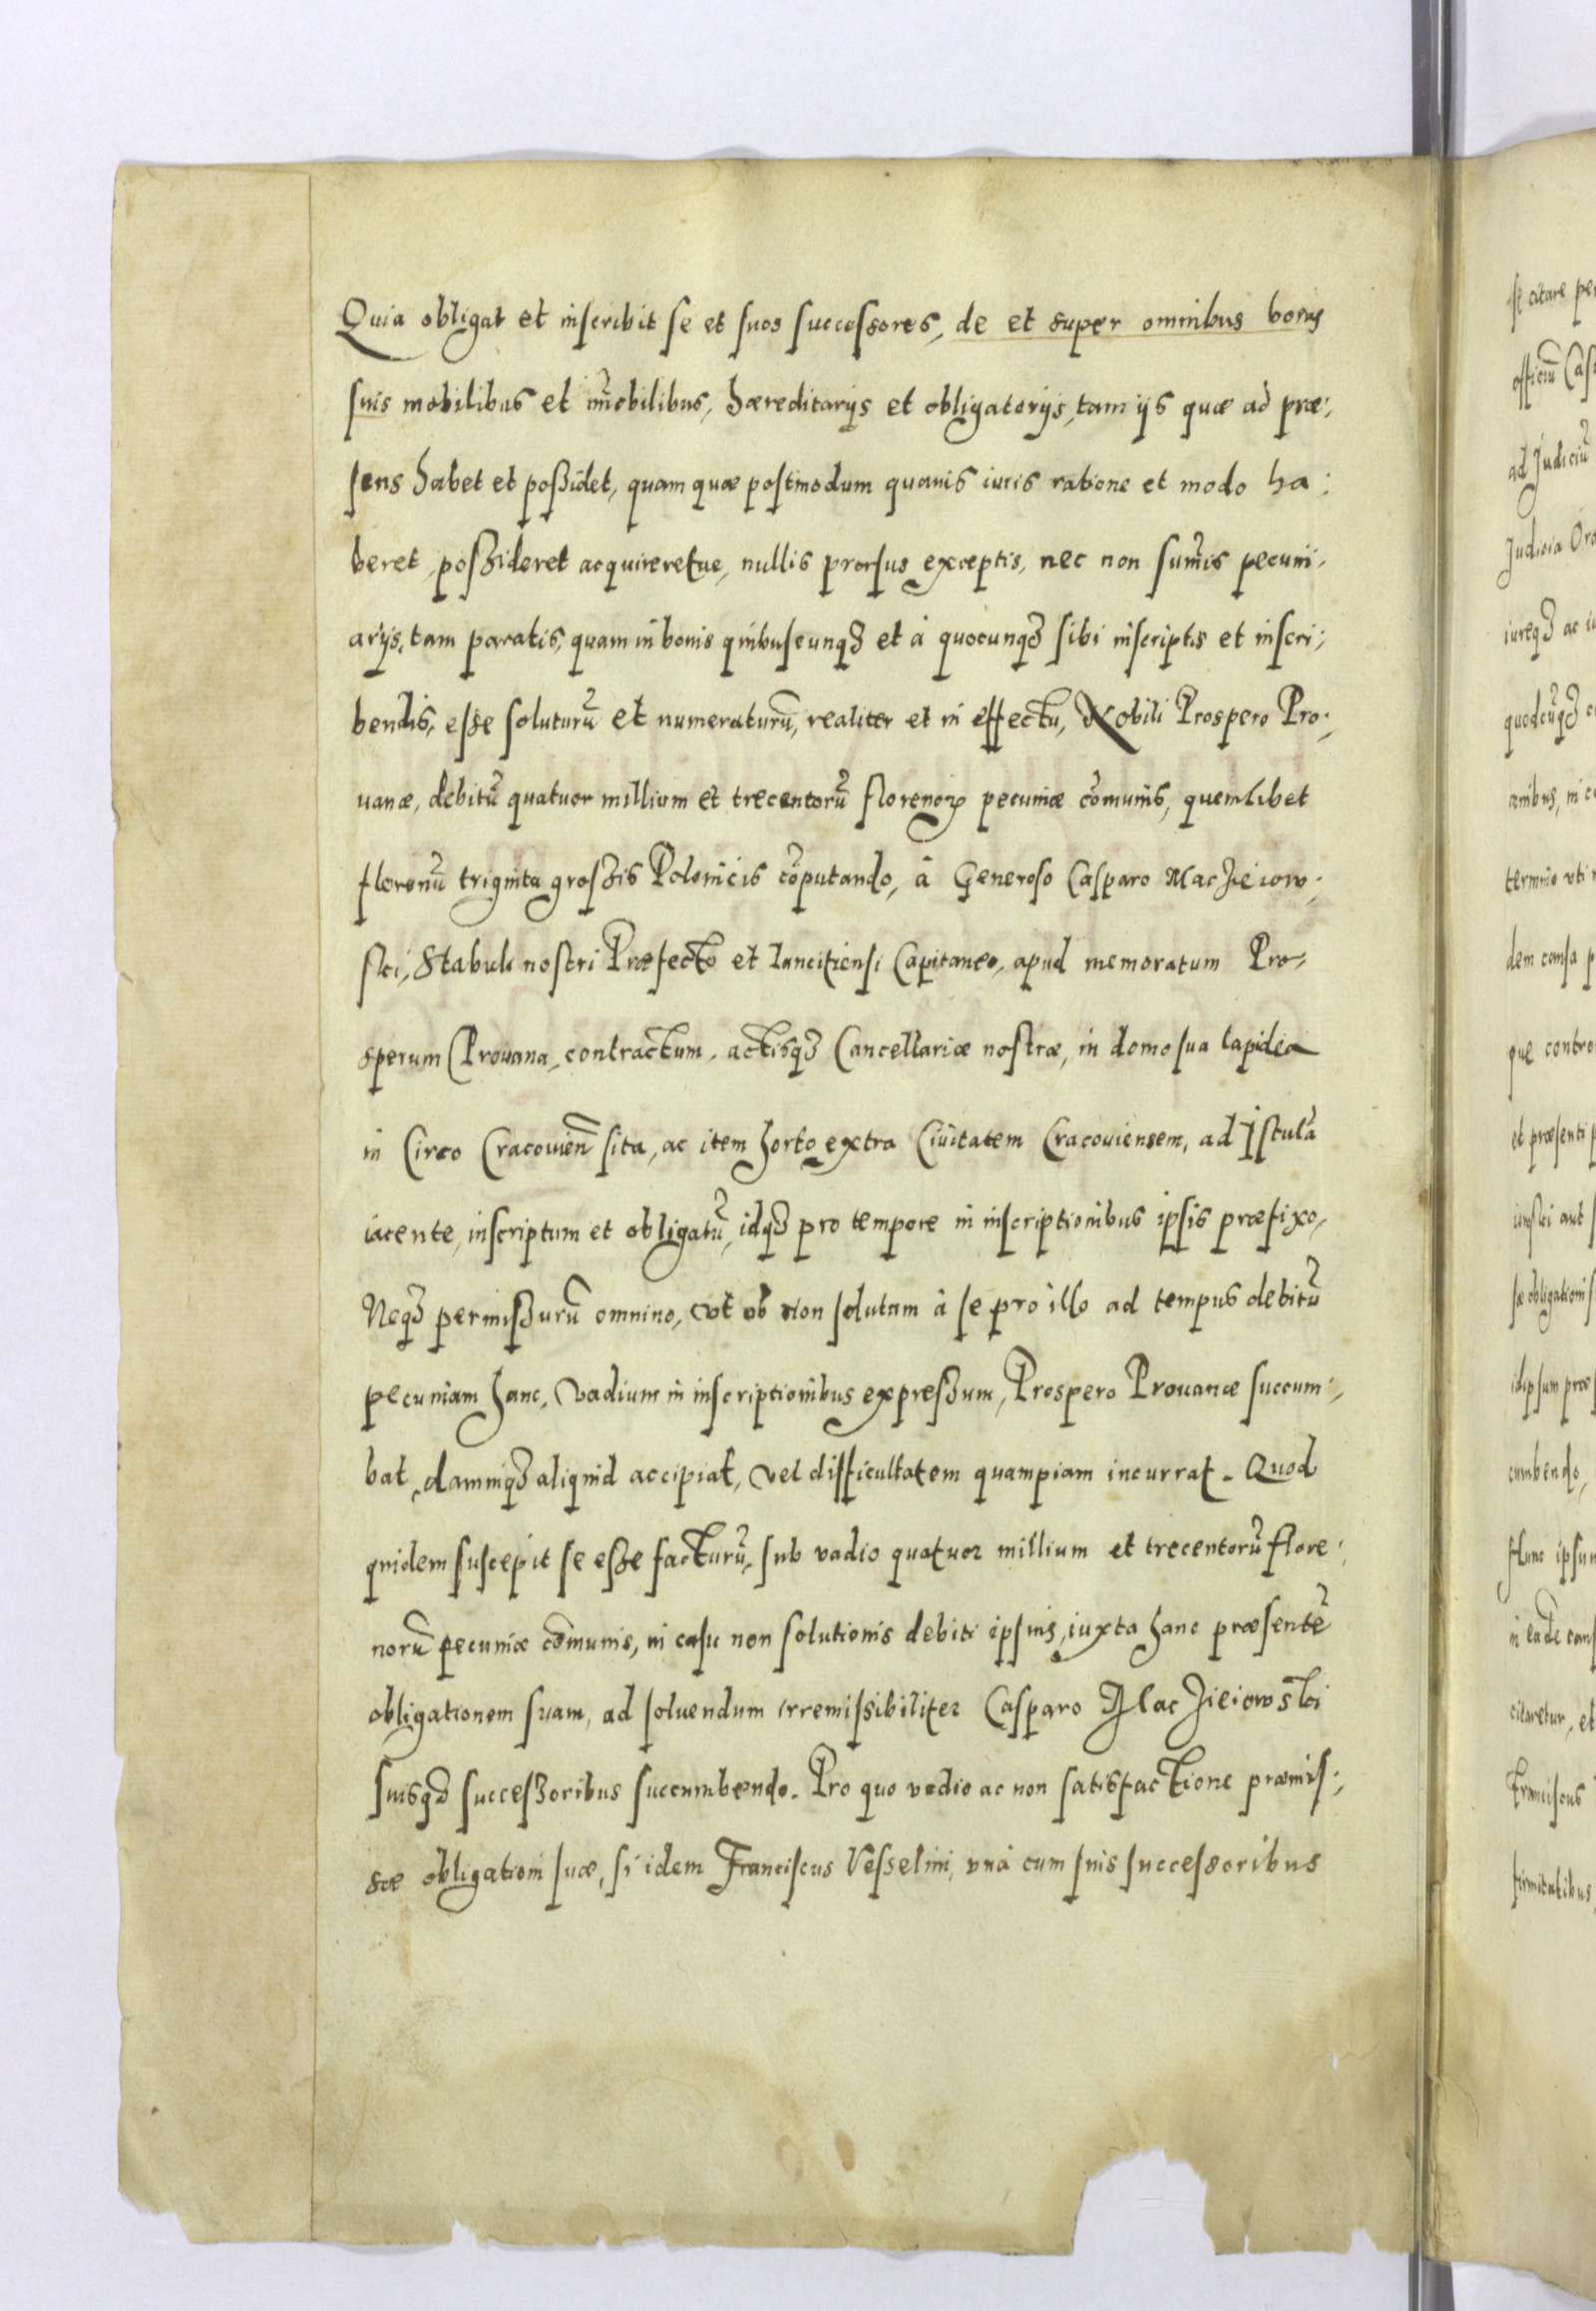 Quia obligat et inscribit se et suos successores, de et super omnibus bonis
suis mobilibus et im̃obilibus, hæreditarijs et obligatorijs, tam ijs quæ ad præ:
sens habet et poßidet, quam quæ postmodum quauis iuris ratione et modo ha:
beret, possideret acquireretue, nullis prorsus exceptis, nec non sum̃is pecuni,
arijs, tam paratis, quam in bonis quibuscunqȝ et à quocunqȝ sibi inscriptis et inscri:
bendis, esse soluturũ et numeraturũ, realiter et in effectu, Nobili Prospero Pro:
uanæ, debitũ quatuor millium et trecentorũ florenoꝝ pecuniæ cõmunis, quemlibet
florenũ triginta grossis Polonicis cõputando, à Generoso Casparo Macieiow:
ski, Stabuli nostri Præfecto et Lancitiensi Capitaneo, apud memoratum Pro-
sperum Prouana, contractum, actisqȝ Cancellariæ nostræ, in domo sua lapidea
in Circo Cracouieñ sita, ac item horto extra Ciuitatem Cracouiensem, ad Istulã
iacente, inscriptum et obligatũ, idqȝ pro tempore in inscriptionibus ipsis præfixo,
Neqȝ permissurũ omnino, vt ob non solutam à se pro illo ad tempus debitũ
pecuniam hanc, vadium in inscriptionibus expressum, Prospero Prouanæ succum:
bat, damniqȝ aliquid accipiat, vel difficultatem quampiam incurrat. Quod
quidem suscepit se esse facturũ, sub vadio quatuor millium et trecentorũ flore:
norũ pecuniæ cõmunis, in casu non solutionis debiti ipsius, iuxta hanc præsentẽ
obligationem suam, ad soluendum irremissibiliter Casparo Macieiowski
suisqȝ successoribus succumbendo. Pro quo vadio ac non satisfactione præmis:
sæ obligationi suæ, si idem Franciscus Vesselini, vnà cum suis successoribus
se citare
officiũ
ad Judiciũ
Judicia
iureqȝ ac
quodcũqȝ
termino vti
dem causa
que
et præsenti
se obligationi
idipsum præ
cumbendo,
Hunc
in eadẽ
citaretur, et
Franciscus
firmitatibus